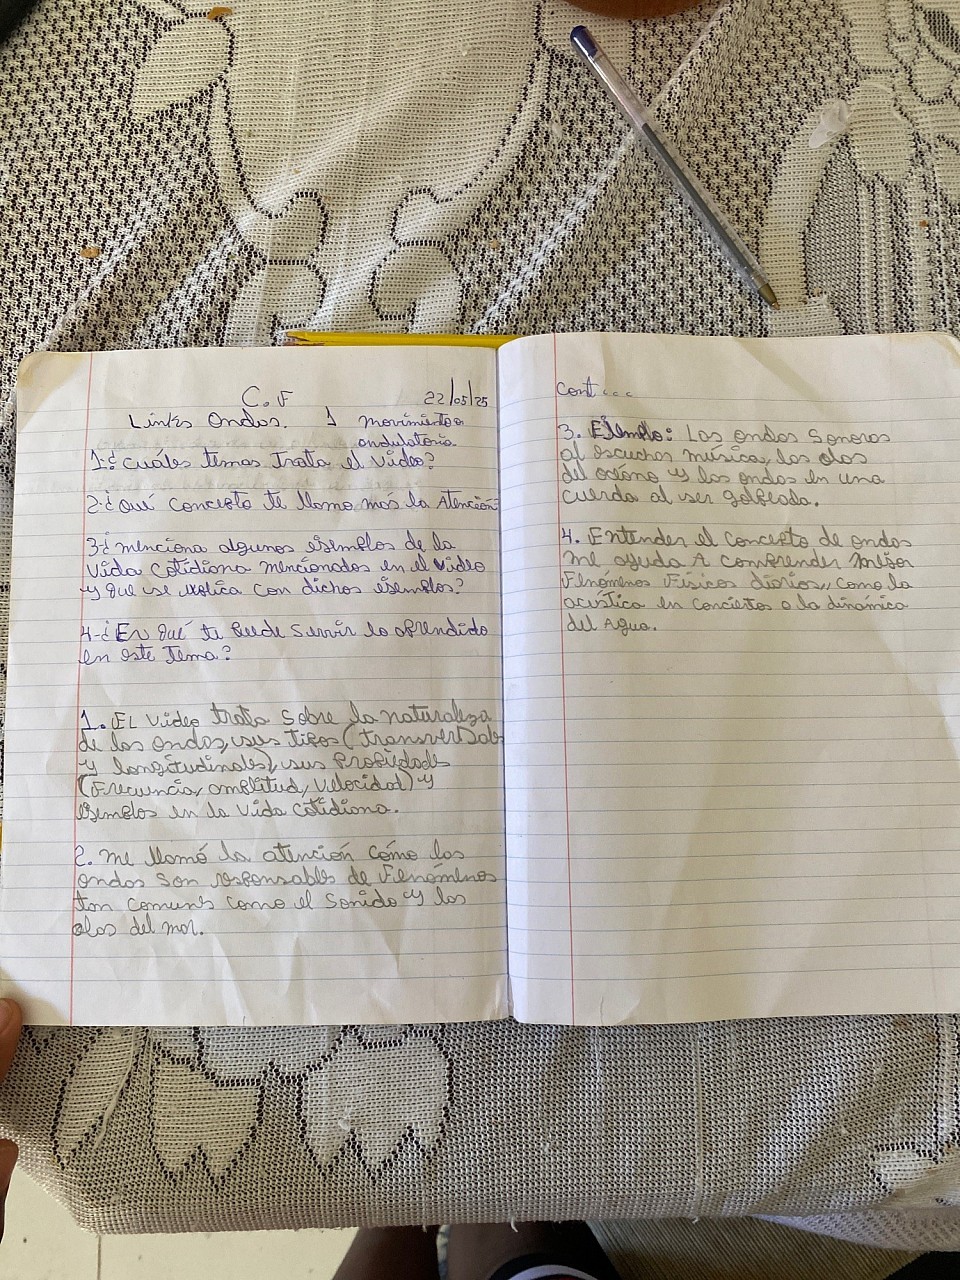 C.F 22/05/25
Links Ondas. 1 movimiento
ondulatorio.
1-¿cuáles temas trata el video?
2-¿Qué concepto te llamo más la Atención
3-¿menciona algunos ejemplos de la
vida cotidiana mencionados en el video
y que se explica con dichos ejemplos?
4-¿En qué te puede servir lo aprendido
en este tema?
1. El video trata sobre la naturaleza
de las ondas, sus tipos (transversales
y longitudinales), sus propiedades
(Frecuencia, amplitud, velocidad) y
ejemplos en la vida cotidiana.
2. me llamó la atención cómo las
ondas son responsables de Fenómenos
tan comunes como el sonido y las
olas del mar.
cont...
3. Ejemplo: Las ondas sonoras
al escuchar música, las olas
del océano y las ondas en una
cuerda al ser golpeada.
4. Entender el concepto de ondas
me ayuda A comprender mejor
Fenómenos Físicos diarios, como la
acústica en conciertos o la dinámica
del Agua.